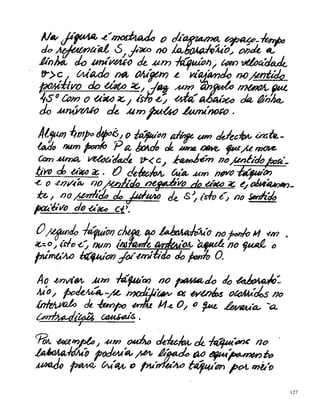 Na figura é mostrado o diagrama espaço-tempo
do referencial S, fixo no laboratório, onde a
linha do universo de um táquion, com velocidade
v>c, criado na origem e viajando no sentido
positivo do eixo x, faz um ângulo menor que
45° com o eixo x, isto é, está abaixo da linha
do universo de um pulso luminoso.
Algum tempo depois, o táquion atinge um detector insta-
lado num ponto P a bordo de uma nave que se move
com uma velocidade v<c, também no sentido posi-
tivo do eixo x. O detector cria um novo táquion
e o envia no sentido negativo do eixo x e, obviamen-
te, no sentido do futuro de S', isto é, no sentido
positivo do eixo ct'.
O segundo táquion chega ao laboratório no ponto M em
x=0, isto é, num instante anterior àquele no qual o
primeiro táquion foi emitido do ponto O.
Ao enviar um táquion no passado do laborató-
rio, poderia-se modificar os eventos ocorridos no
intervalo de tempo entre M e O, o que levaria à
contradições causais.
Por exemplo, um outro detector de táquions no
laboratório poderia ser ligado ao equipamento
usado para criar o primeiro táquion por meio
127